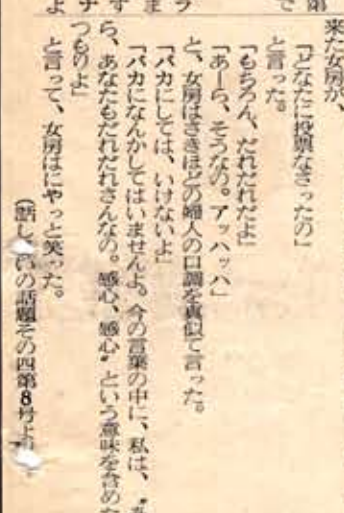 来た女房が、
「どなたに投票なさったの」
と言った。
「もちろん、だれだれだよ」
「あーら、そうなの。アッハッハ」
と、女房はさきほどの婦人の口調を真似て言った。
「バカにしては、いけないよ」
「バカになんかしてはいませんよ。今の言葉の中に、私は、
ら、あなたもだれだれさんなの。感心、感心〟という意味を含めた
つものよ」
と言って、女房はにやっと笑った。
(話し いの話題その四第8号より